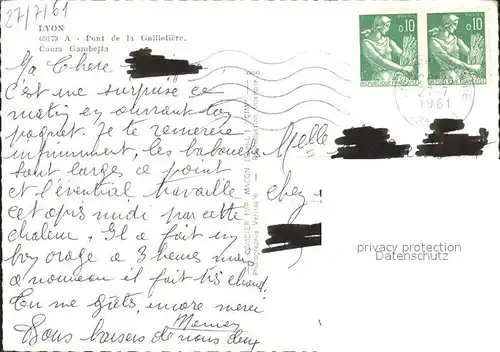 27/7/61
LYON
69173 A - Pont de la Guillotière.
Cours Gambetta
Ma Chère
c'est une surprise ce
matin en ouvrant ton
paquet. Je te remercie
infiniment, les babouches
sont larges à point
et l'éventail travaille
cet après midi par cette
chaleur. Il a fait un
bon orage à 3 heures mais
à nouveau il fait très chaud.
Tu me gâtes, encore merci
Bons baisers de nous deux
Melle
chez
COMBIER IMP. MACON
Photographie Véritable - Reproduction Interdite
0,10
0,10
1961
privacy protection
Datenschutz